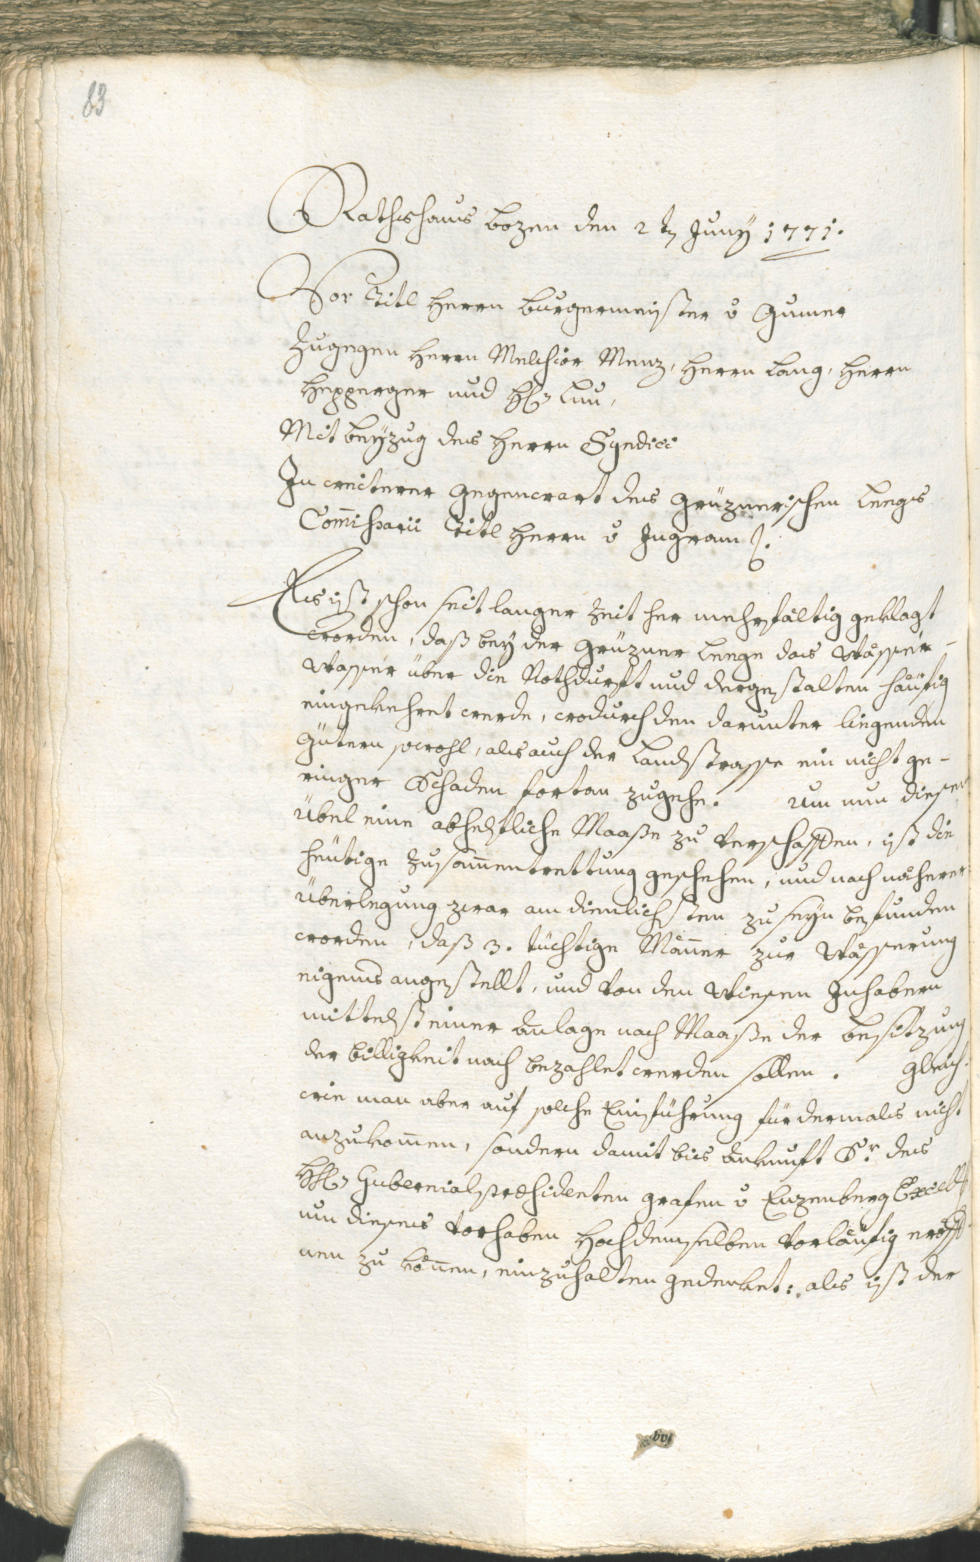 83
Rathshaus Bozen den 2t Juny 1771.
Vor Titl Herrn Burgermeister v Gumer
Zugegen Herrn Melchior Menz, Herrn Lang, Herrn
Hepperger und H:
Mit beyzug des Herrn Syndici
In weiterer gegenwart des Grüznerischen Leegs
Commissarii Titl Herrn v Ingram
Es ist schon seit langer Zeit her mehrfältig geklagt
worden, daß bey der Grüzner Leege das Wässer-
Wasser über die Nothdurft und dergestalten häufig
eingekehret werde, wodurch den darunter liegenden
Gütern sowohl, als auch der Landstrasse ein nicht ge-
ringer Schaden fortan zugehe. Um nun diesem
Übel eine abhelfliche Maaße zu verschaffen, ist die
heutige Zusammentrettung geschehen, und nach näherer
Überlegung zwar am dienlichsten zu seyn befunden
worden, daß 3. tüchtige Männer zur Wässerung
eigends angestellt, und von den Wiesen Inhabern
mittelst einer Anlage nach Maaße der Besitzung
der billigkeit nach bezahlet werden sollen. Gleich-
wie man aber auf solche Einführung für dermals nicht
anzukommen, sondern damit bis Ankunft Sr des
H: Gubernialspræsidenten Grafen v Enzenberg Excell:
um dieses Vorhaben Hochdemselben vorläufig eröff-
nen zu können, einzuhalten gedenket: als ist der